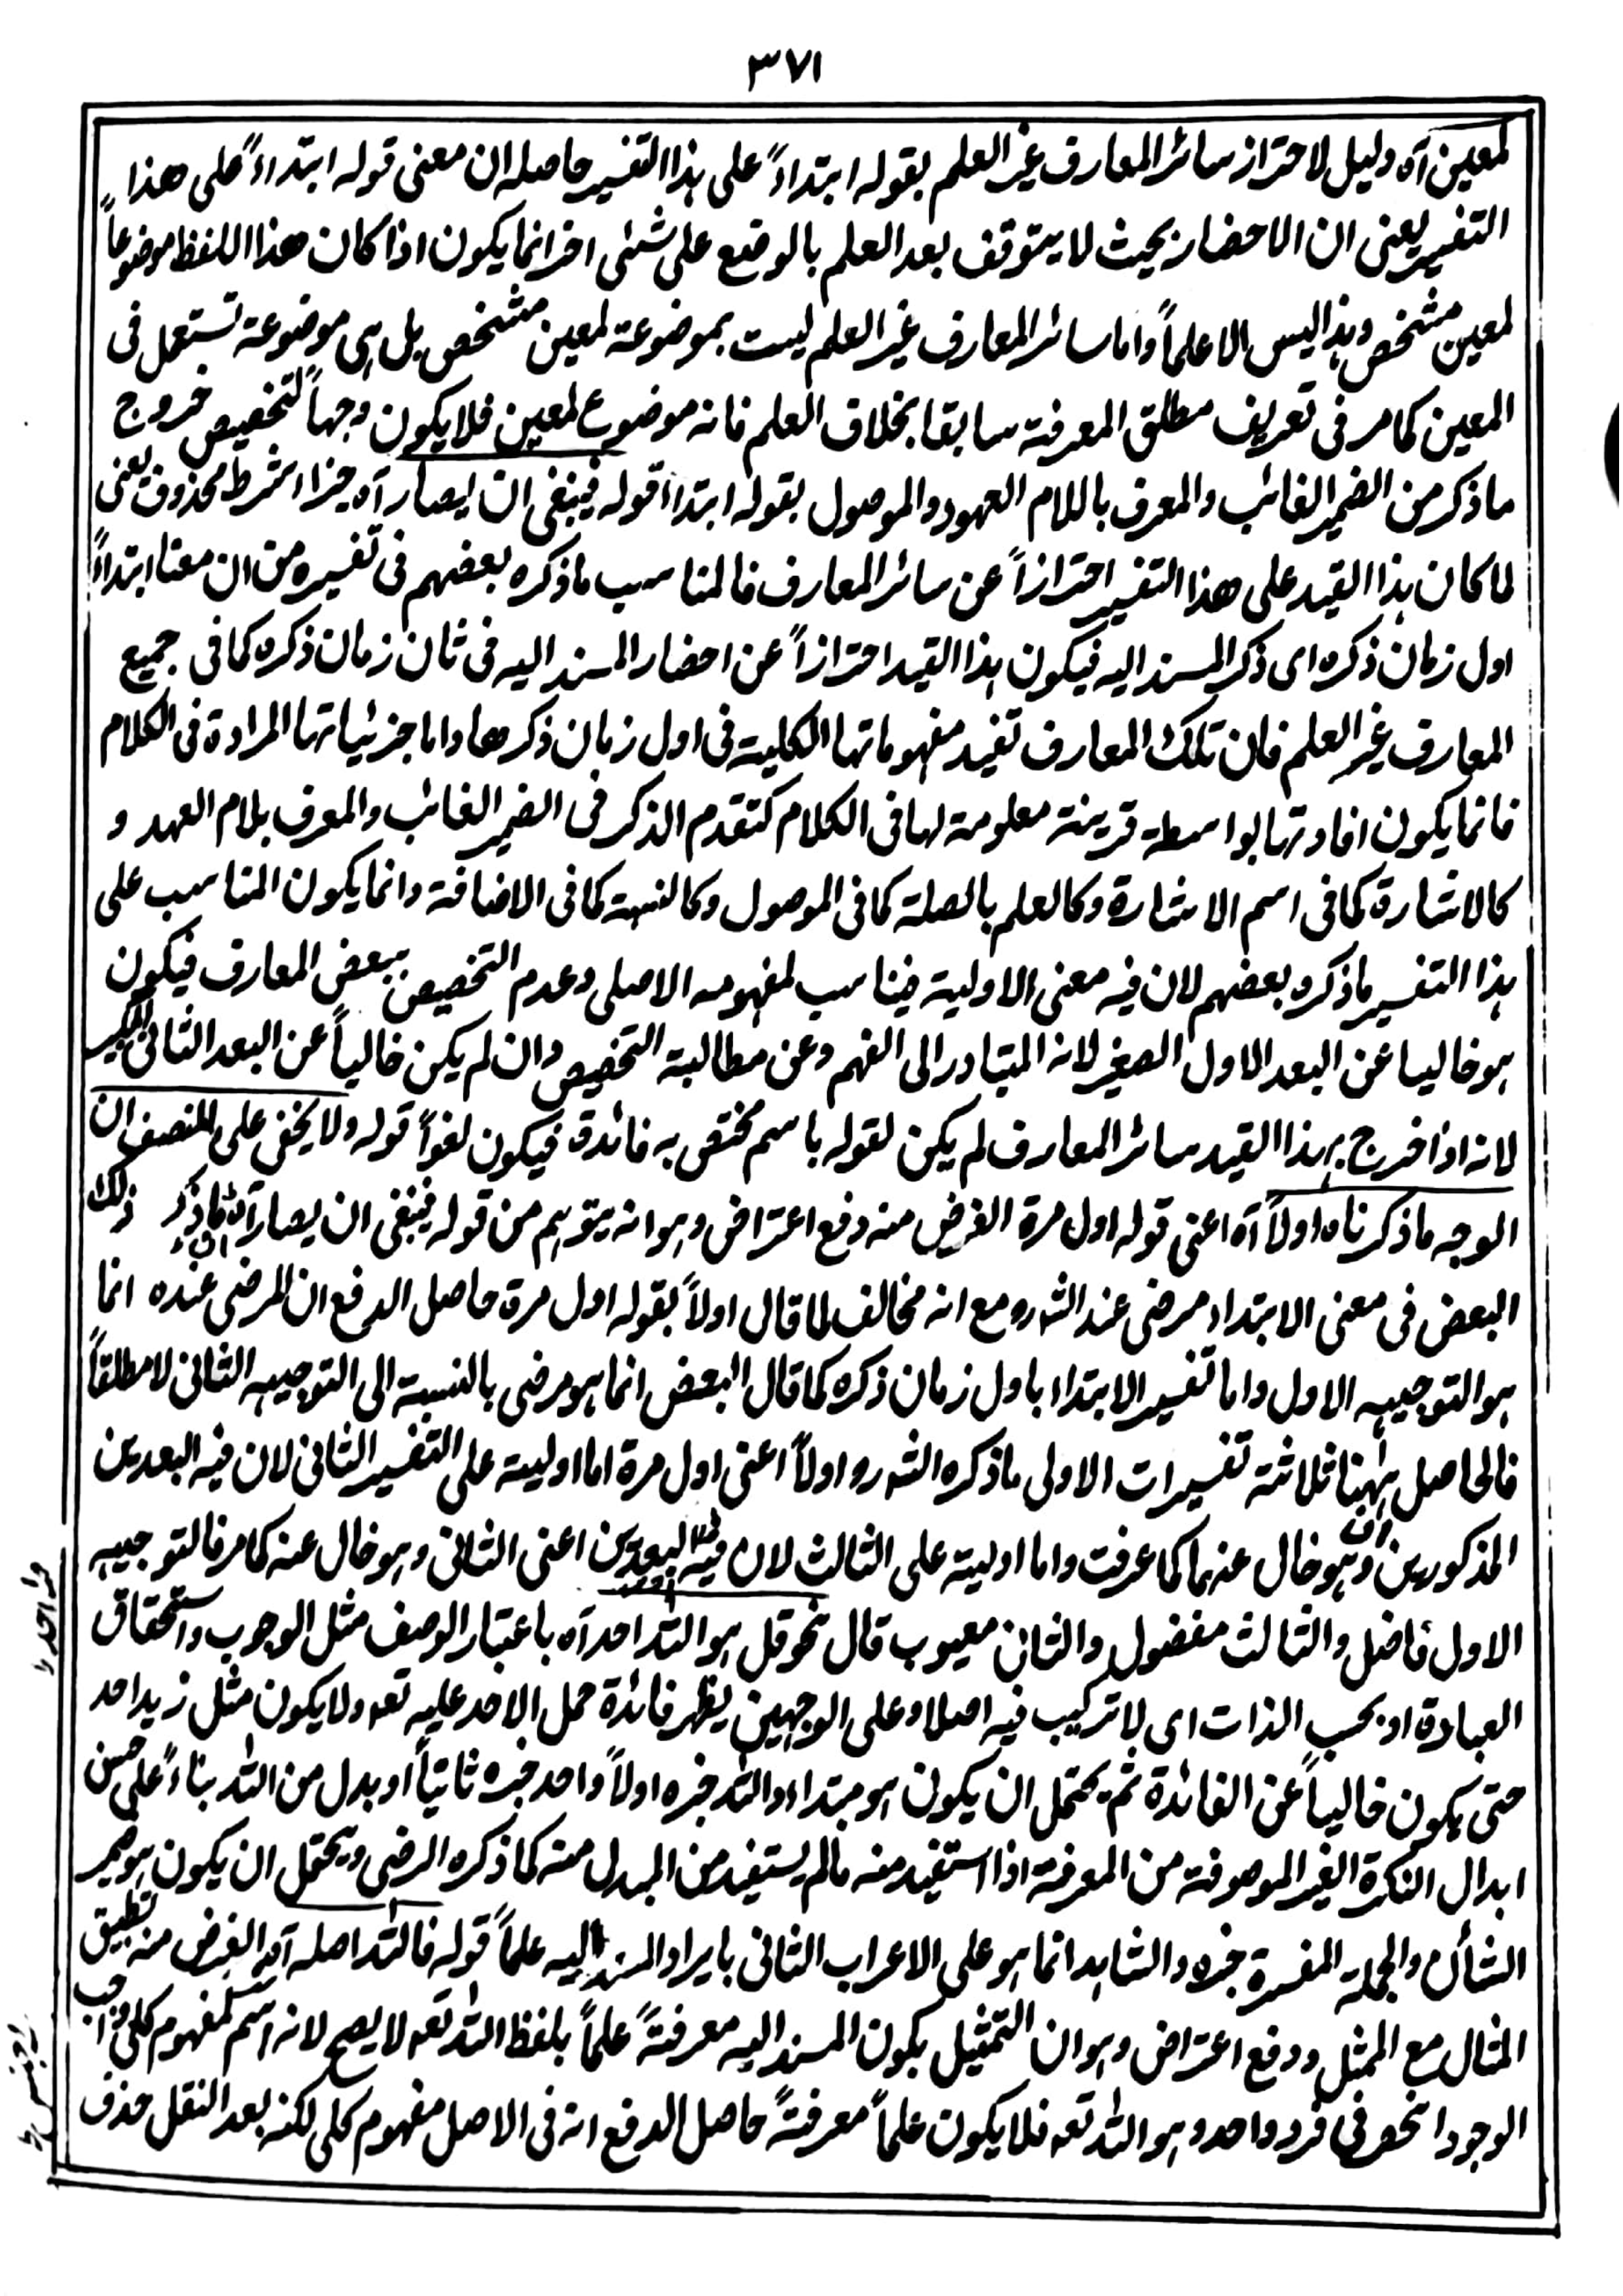 ٣٧١
لمعين آه دليل لاحتراز سائر المعارف غير العلم بقوله ابتداءً على هذا التفسير حاصله ان معنى قوله ابتداءً على هذا
التفسير يعنى ان الاحضار بحيث لا يتوقف بعد العلم بالوضع على شئى اخر انما يكون اذا كان هذا اللفظ موضوعاً
لمعين مشخص وهذا ليس الا علماً واما سائر المعارف غير العلم ليست بموضوعة لمعين مشخص بل هى موضوعة تستعمل فى
المعين كما مر فى تعريف مطلق المعرفة سابقا بخلاف العلم فانه موضوع لمعين فلا يكون وجهاً لتخصيص خروج
ما ذكر من الضمير الغائب والمعرف باللام العهود والموصول بقوله ابتداءً قوله فينبغى ان ايصار آه جزاء شرط محذوف يعنى
لما كان هذا القيد على هذا التفسير احترازاً عن سائر المعارف فالمناسب ما ذكره بعضهم فى تفسيره من ان معنا ابتداءً
اول زمان ذكره اى ذكر المسند اليه فيكون هذا القيد احترازاً عن احضار المسند اليه فى ثان زمان ذكره كما فى جميع
المعارف غير العلم فان تلك المعارف تفيد مفهوماتها الكلية فى اول زمان ذكرها واما جزئياتها المرادة فى الكلام
فانما يكون افادتها بواسطة قرينة معلومة لها فى الكلام كتقدم الذكر فى الضمير الغائب والمعرف بلام العهد و
كالاشارة كما فى اسم الاشارة وكالعلم بالصلة كما فى الموصول وكالنسبة كما فى الاضافة وانما يكون المناسب على
هذا التفسير ما ذكره بعضهم لان فيه معنى الاولية فيناسب لمفهومه الاصلى وعدم التخصيص ببعض المعارف فيكون
هو خاليا عن البعد الاول الصغير لانه المتبادر الى الفهم وعن مطالبة التخصيص وان لم يكن خالياً عن البعد الثانى الكبير
لانه اذا خرج بهذا القيد سائر المعارف لم يكن لقوله باسم مختص به فائدة فيكون لغواً قوله ولا يخفى على المنصف ان
الوجه ما ذكرناه اولاً آه اعنى قوله اول مرة الغرض منه دفع اعتراض وهو انه يتوهم من قوله فينبغى ان يصار آه ان ما ذكر ذلك
البعض فى معنى الابتداء مرضى عند الشارو مع انه مخالف لما قال اولاً بقوله اول مرة حاصل الدفع ان المرضى عنده انما
هو التوجيه الاول واما تفسير الابتداء باول زمان ذكره كما قال البعض انما هو مرضى بالنسبة الى التوجيه الثانى لا مطلقاً
فالحاصل ههنا ثلاثة تفسيرات الاولى ما ذكره الشارو اولاً اعنى اول مرة اما اولية على التفسير الثانى لان فيه البعدين
المذكورين وهو خال عنهما كما عرفت واما اولية على الثالث لان فيه احد البعدين اعنى الثانى وهو خال عنه كما مر فالتوجيه
الاول فاضل والثالث مفضول والثانى معيوب قال نحو قل هو الله احد آه باعتبار الوصف مثل الوجوب واستحقاق
العبادة او بحسب الذات اى لا تركيب فيه اصلا وعلى الوجهين يظهر فائدة حمل الاحد عليه تعه ولا يكون مثل زيد احد
حتى يكون خالياً عن الفائدة ثم يحتمل ان يكون هو مبتداء والله خبره اولاً واحد خبره ثانياً او بدل من الله بناءً على حسن
ابدال النكرة الغير الموصوفة من المعرفة اذا استفيد منه مالم يستفيد من المبدل منه كما ذكره الرضى ويحتمل ان يكون هو ضمير
الشأن والجملة المفسرة خبره والشاهد انما هو على الاعراب الثانى بايراد المسند اليه علماً قوله فالله اصله آه الغرض منه تطبيق
المثال مع الممثل ودفع اعتراض وهو ان التمثيل بكون المسند اليه معرفةً علماً بلفظ الله تعه لا يصح لانه اسم لمفهوم كلى واجب
الوجود انحصر فى فرد واحد وهو الله تعه فلا يكون علماً معرفةً حاصل الدفع انه فى الاصل مفهوم كلى لكنه بعد النقل حذف